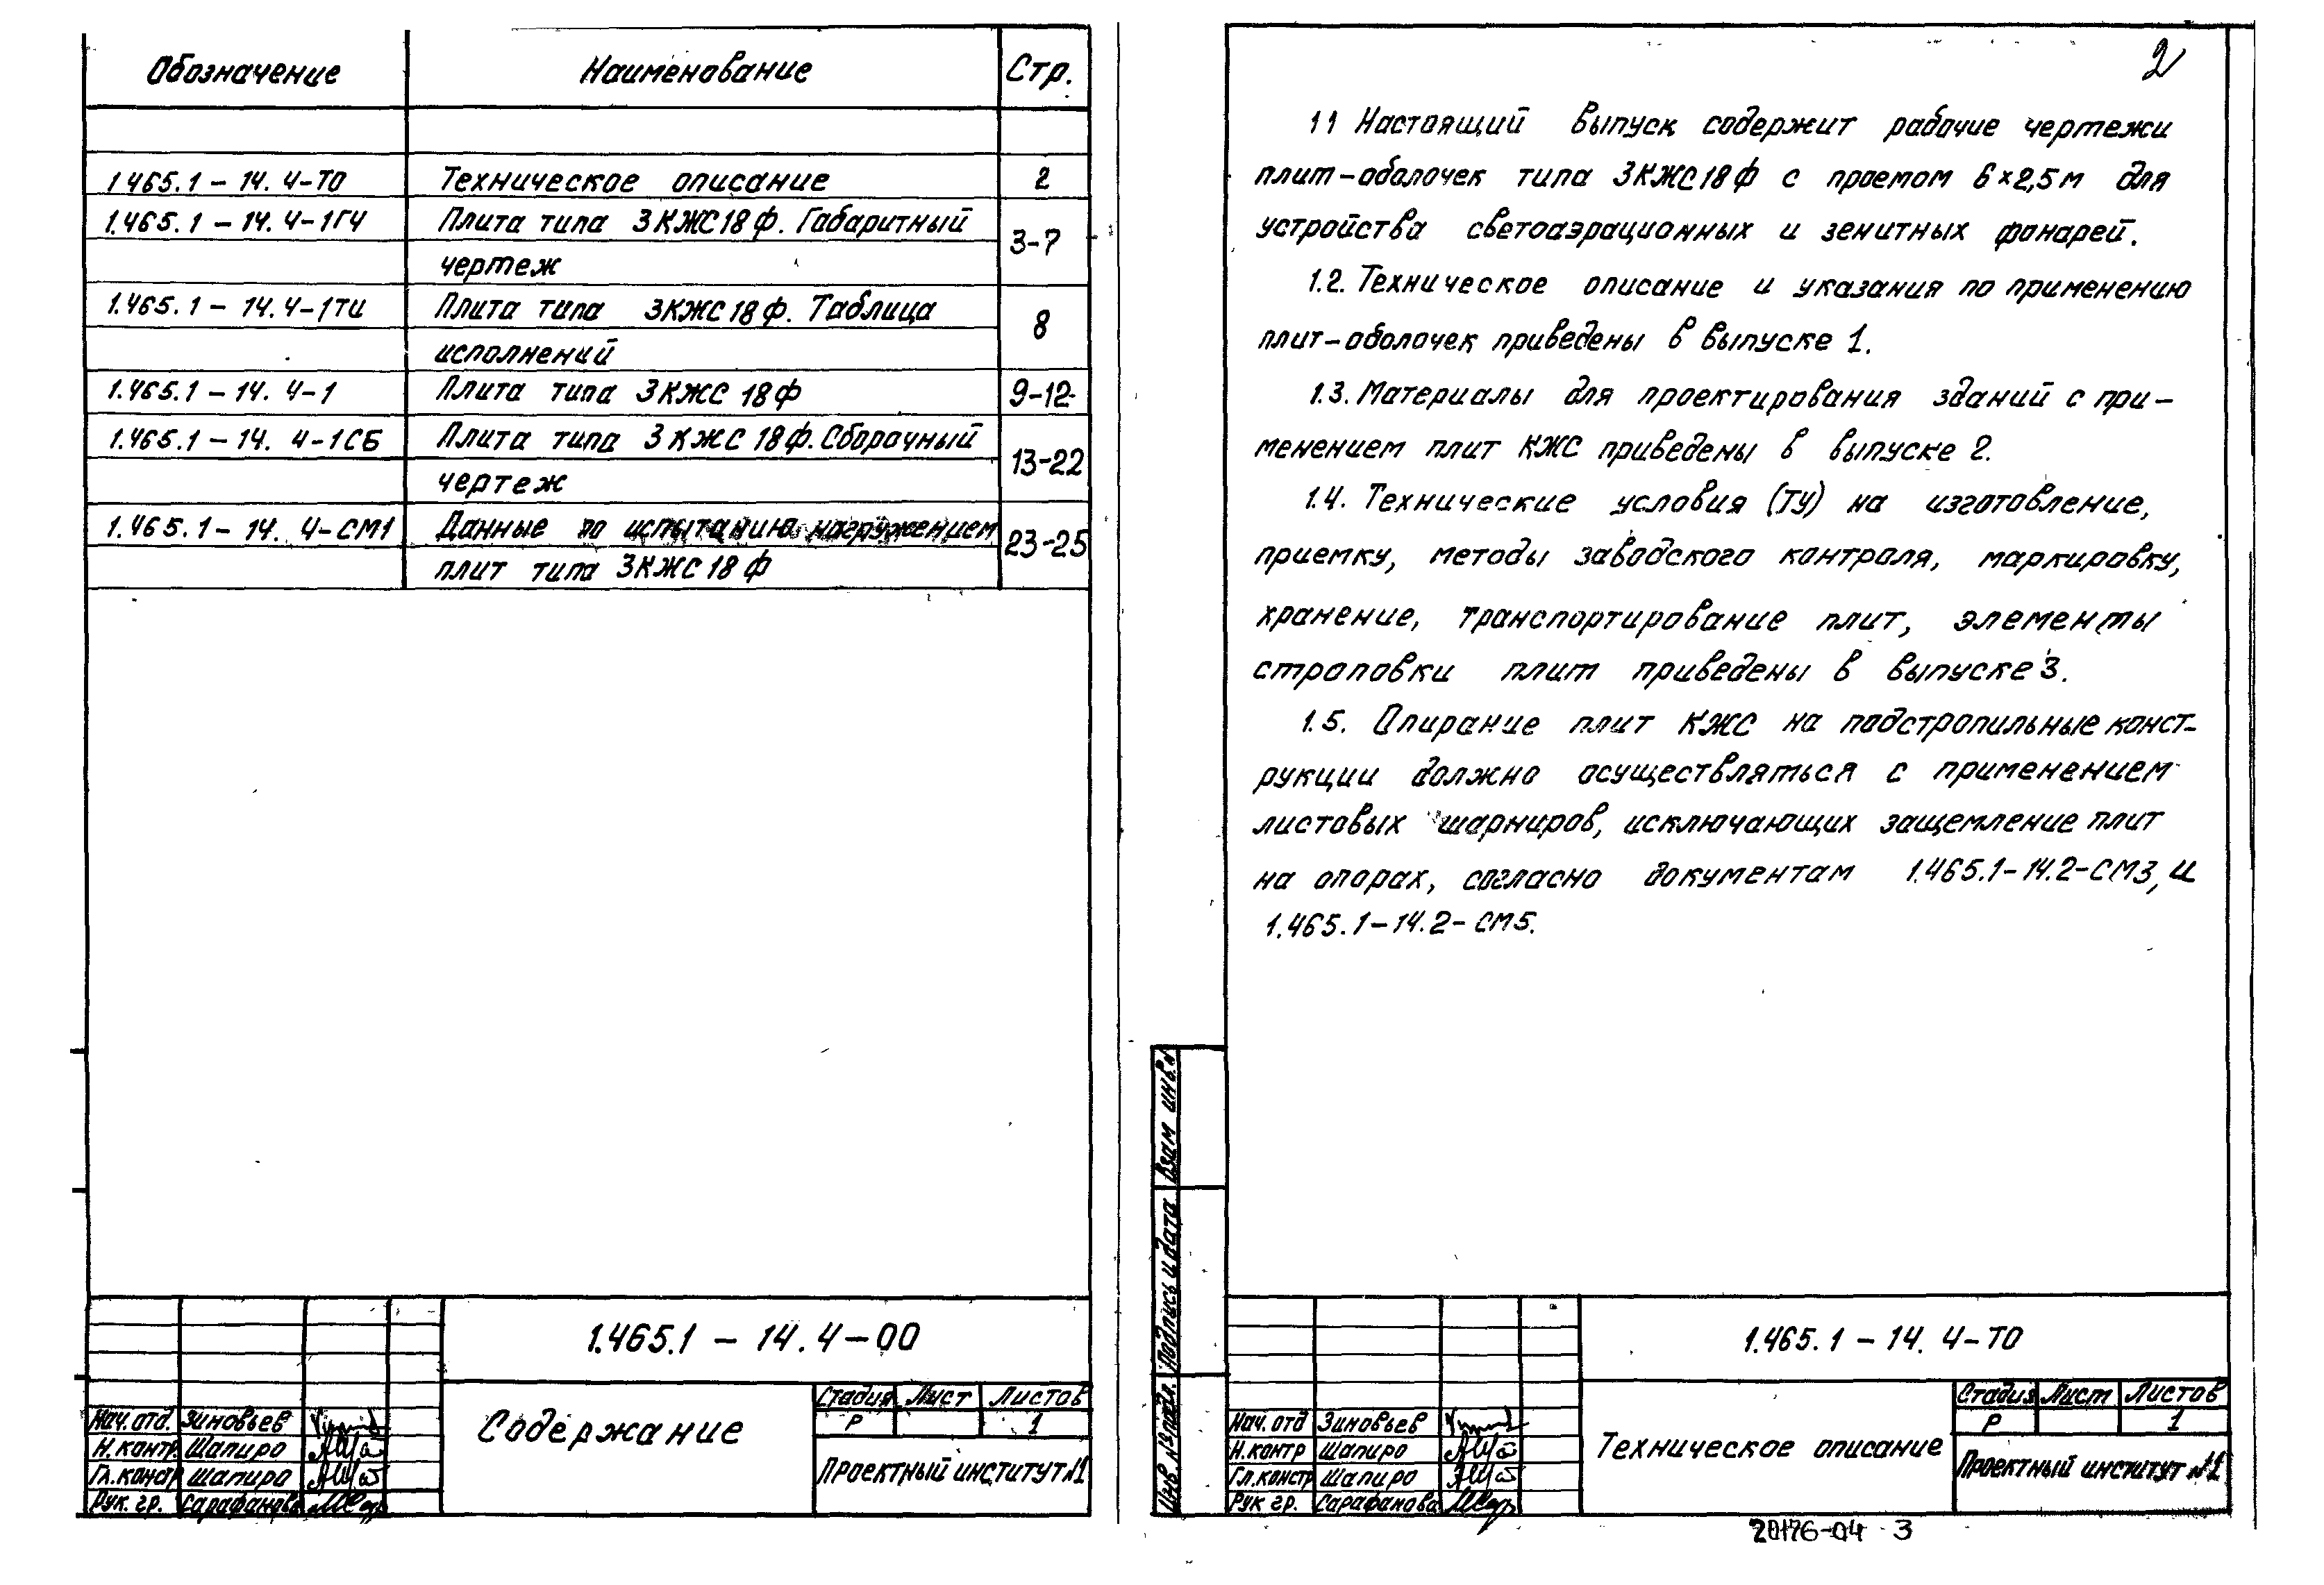 Обозначение Наименование Стр.
1465.1-14.4-ТО Техническое описание 2
1.465.1-14.4-1ГЧ Плита типа 3КЖС18Ф. Габаритный 3-7
чертеж
1.465.1-14.4-1ТИ Плита типа 3КЖС18Ф. Таблица 8
исполнений
1.465.1-14.4-1 Плита типа 3КЖС18Ф 9-12
1.465.1-14.4-1СБ Плита типа 3КЖС18Ф. Сборочный 13-22
чертеж
1.465.1-14.4-СМ1 Данные по испытанию нагружением 23-25
плит типа 3КЖС18Ф
1.465.1-14.4-00
Содержание
Стадия Лист Листов
Р 1
Проектный институт №1
Нач. отд. Зиновьев
Н. контр Шапиро
Гл. констр Шапиро
Рук. гр. Сарафанова
2
1 1 Настоящий выпуск содержит рабочие чертежи
плит-оболочек типа 3КЖС18Ф с проемом 6×2,5м для
устройства светоаэрационных и зенитных фонарей.
1.2. Техническое описание и указания по применению
плит-оболочек приведены в выпуске 1.
1.3. Материалы для проектирования зданий с при-
менением плит КЖС приведены в выпуске 2.
1.4. Технические условия (ТУ) на изготовление,
приемку, методы заводского контроля, маркировку,
хранение, транспортирование плит, элементы
строповки плит приведены в выпуске 3.
1.5. Опирание плит КЖС на подстропильные конст-
рукции должно осуществляться с применением
листовых шарниров, исключающих защемление плит
на опорах, согласно документам 1.465.1-14.2-СМ3, и
1.465.1-14.2-СМ5.
Взам инв.№
Подпись и дата
Инв. № подл.
1.465.1-14.4-ТО
Техническое описание
Стадия Лист Листов
Р 1
Проектный институт №1
Нач. отд Зиновьев
Н. контр Шапиро
Гл. констр Шапиро
Рук гр. Сарафанова
20176-04 3